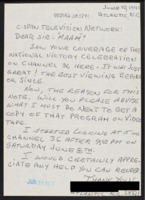 June 19, 1991
Atlantic,
C-SPAN Television Network:
Dear Sir - Maam:
Saw your coverage of the
National Victory Celebration
on Channel 36 here. It was just
great! The best viewing
Now, the reason for this
note. Will you please advise
what I must do to get a
copy of that program on video
tape.
I started looking at it on
Channel 36 after 9PM on
Saturday June 8th.
I would certainly appre-
ciate any help you can
Thank you